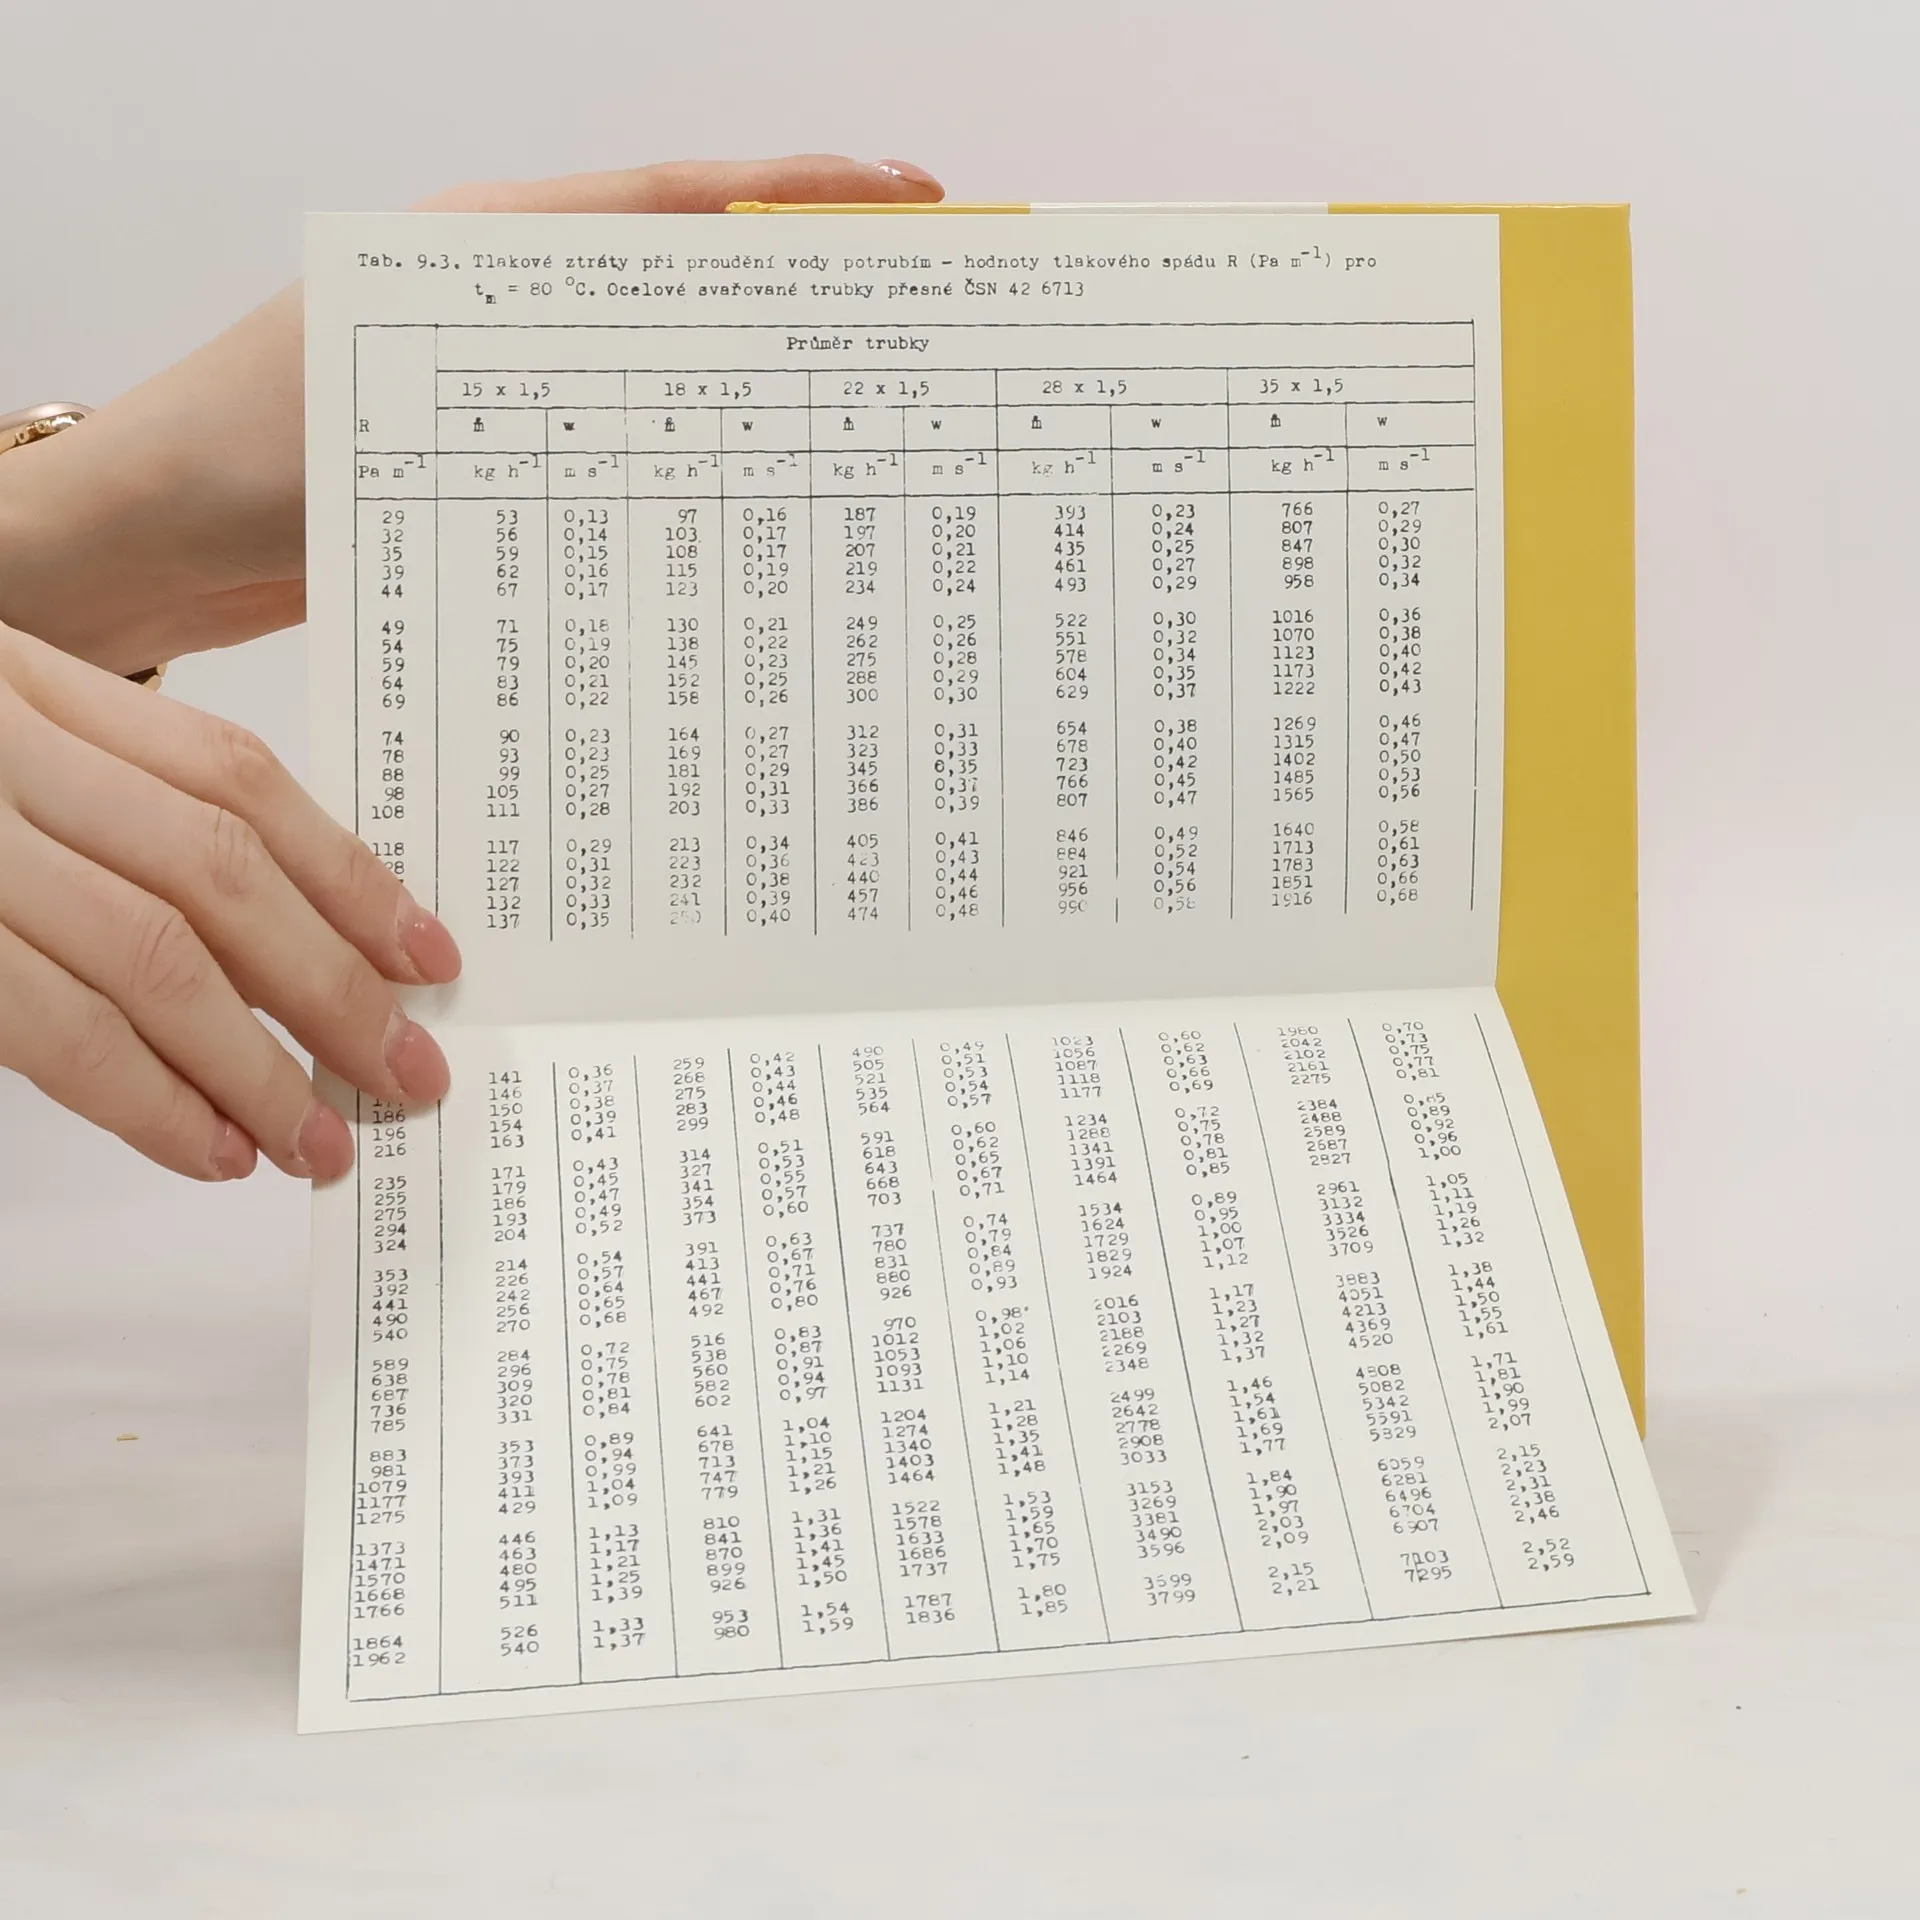 Tab. 9.3. Tlakové ztráty při proudění vody potrubím - hodnoty tlakového spádu R (Pa m⁻¹) pro
tₘ = 80 °C. Ocelové svařované trubky přesné ČSN 42 6713
Průměr trubky
15 x 1,5 18 x 1,5 22 x 1,5 28 x 1,5 35 x 1,5
R ṁ w ṁ w ṁ w ṁ w ṁ w
Pa m⁻¹ kg h⁻¹ m s⁻¹ kg h⁻¹ m s⁻¹ kg h⁻¹ m s⁻¹ kg h⁻¹ m s⁻¹ kg h⁻¹ m s⁻¹
29 53 0,13 97 0,16 187 0,19 393 0,23 766 0,27
32 56 0,14 103 0,17 197 0,20 414 0,24 807 0,29
35 59 0,15 108 0,17 207 0,21 435 0,25 847 0,30
39 62 0,16 115 0,19 219 0,22 461 0,27 898 0,32
44 67 0,17 123 0,20 234 0,24 493 0,29 958 0,34
49 71 0,18 130 0,21 249 0,25 522 0,30 1016 0,36
54 75 0,19 138 0,22 262 0,26 551 0,32 1070 0,38
59 79 0,20 145 0,23 275 0,28 578 0,34 1123 0,40
64 83 0,21 152 0,25 288 0,29 604 0,35 1173 0,42
69 86 0,22 158 0,26 300 0,30 629 0,37 1222 0,43
74 90 0,23 164 0,27 312 0,31 654 0,38 1269 0,46
78 93 0,23 169 0,27 323 0,33 678 0,40 1315 0,47
88 99 0,25 181 0,29 345 0,35 723 0,42 1402 0,50
98 105 0,27 192 0,31 366 0,37 766 0,45 1485 0,53
108 111 0,28 203 0,33 386 0,39 807 0,47 1565 0,56
118 117 0,29 213 0,34 405 0,41 846 0,49 1640 0,58
122 0,31 223 0,36 423 0,43 884 0,52 1713 0,61
127 0,32 232 0,38 440 0,44 921 0,54 1783 0,63
132 0,33 241 0,39 457 0,46 956 0,56 1851 0,66
137 0,35 250 0,40 474 0,48 990 0,58 1916 0,68
141 0,36 259 0,42 490 0,49 1023 0,60 1980 0,70
146 0,37 268 0,43 505 0,51 1056 0,62 2042 0,73
186 150 0,38 275 0,44 521 0,53 1087 0,63 2102 0,75
196 154 0,39 283 0,46 535 0,54 1118 0,66 2161 0,77
216 163 0,41 299 0,48 564 0,57 1177 0,69 2275 0,81
235 171 0,43 314 0,51 591 0,60 1234 0,72 2384 0,85
255 179 0,45 327 0,53 618 0,62 1288 0,75 2488 0,89
275 186 0,47 341 0,55 643 0,65 1341 0,78 2589 0,92
294 193 0,49 354 0,57 668 0,67 1391 0,81 2687 0,96
324 204 0,52 373 0,60 703 0,71 1464 0,85 2827 1,00
353 214 0,54 391 0,63 737 0,74 1534 0,89 2961 1,05
392 226 0,57 413 0,67 780 0,79 1624 0,95 3132 1,11
441 242 0,64 441 0,71 831 0,84 1729 1,00 3334 1,19
490 256 0,65 467 0,76 880 0,89 1829 1,07 3526 1,26
540 270 0,68 492 0,80 926 0,93 1924 1,12 3709 1,32
589 284 0,72 516 0,83 970 0,98 2016 1,17 3883 1,38
638 296 0,75 538 0,87 1012 1,02 2103 1,23 4051 1,44
687 309 0,78 560 0,91 1053 1,06 2188 1,27 4213 1,50
736 320 0,81 582 0,94 1093 1,10 2269 1,32 4369 1,55
785 331 0,84 602 0,97 1131 1,14 2348 1,37 4520 1,61
883 353 0,89 641 1,04 1204 1,21 2499 1,46 4808 1,71
981 373 0,94 678 1,10 1274 1,28 2642 1,54 5082 1,81
1079 393 0,99 713 1,15 1340 1,35 2778 1,61 5342 1,90
1177 411 1,04 747 1,21 1403 1,41 2908 1,69 5591 1,99
1275 429 1,09 779 1,26 1464 1,48 3033 1,77 5829 2,07
1373 446 1,13 810 1,31 1522 1,53 3153 1,84 6059 2,15
1471 463 1,17 841 1,36 1578 1,59 3269 1,90 6281 2,23
1570 480 1,21 870 1,41 1633 1,65 3381 1,97 6496 2,31
1668 495 1,25 899 1,45 1686 1,70 3490 2,03 6704 2,38
1766 511 1,39 926 1,50 1737 1,75 3596 2,09 6907 2,46
1864 526 1,33 953 1,54 1787 1,80 3699 2,15 7103 2,52
1962 540 1,37 980 1,59 1836 1,85 3799 2,21 7295 2,59